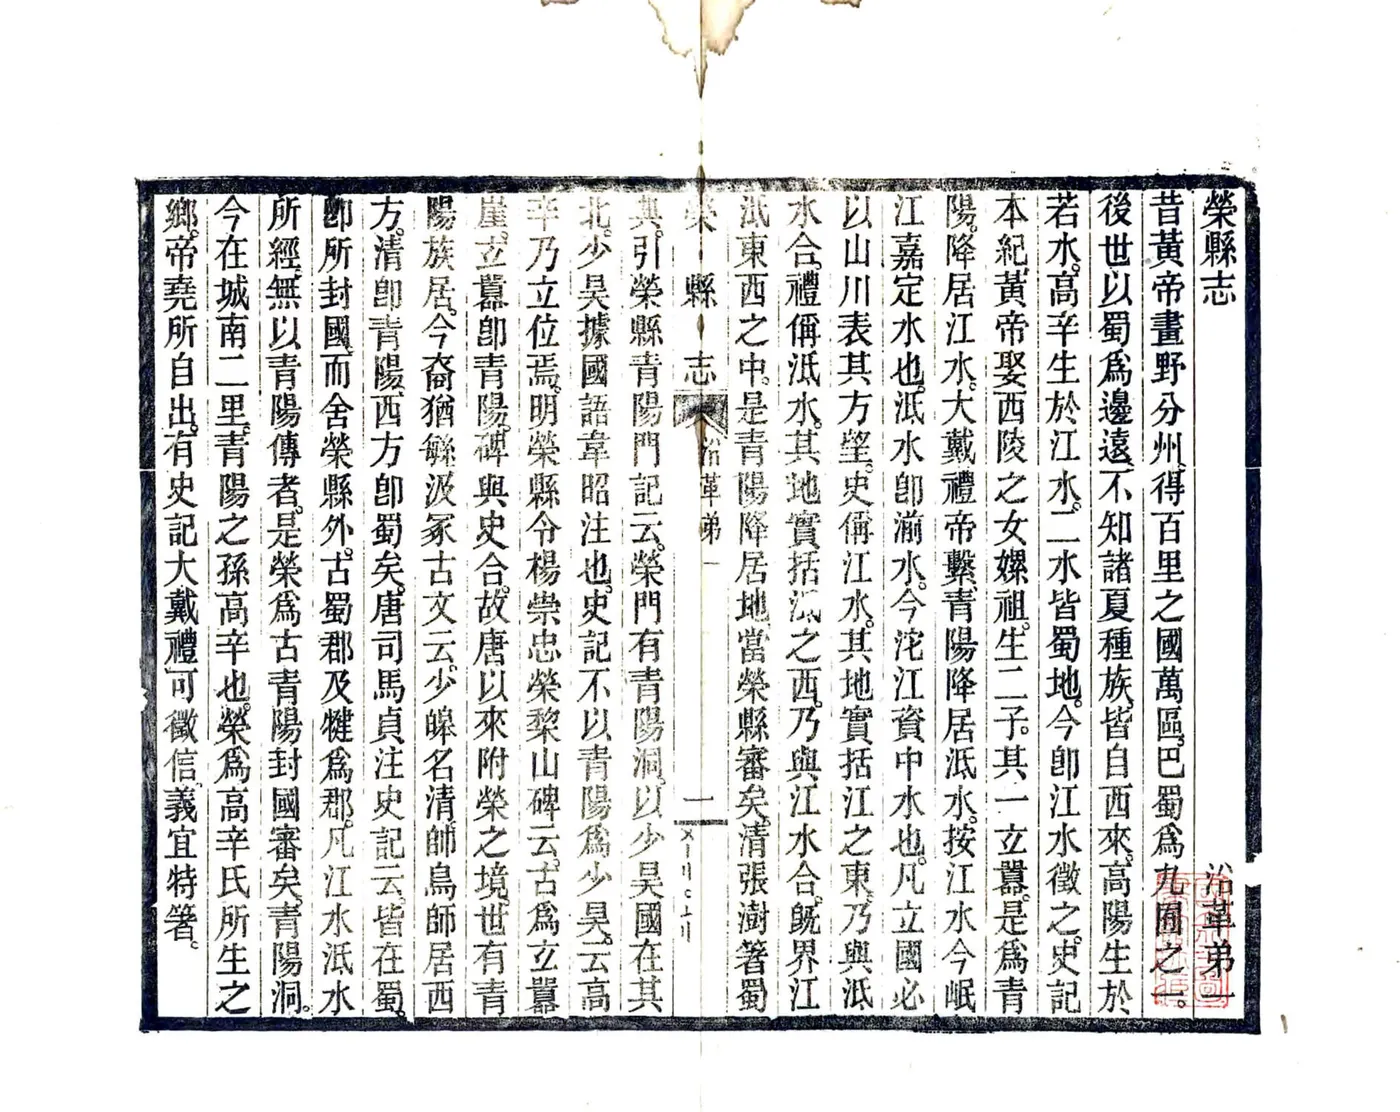 榮縣志 沿革弟一
昔黃帝畫野分州。得百里之國萬區。巴蜀爲九囿之一。
後世以蜀爲邊遠。不知諸夏種族。皆自西來。高陽生於
若水。高辛生於江水。二水皆蜀地。今卽江水徵之。史記
本紀。黃帝娶西陵之女嫘祖。生二子。其一立囂。是爲青
陽。降居江水。大戴禮帝繫。青陽降居泜水。按江水今岷
江嘉定水也。泜水卽湔水。今沱江資中水也。凡立國必
以山川表其方望。史偁江水。其地實括江之東。乃與泜
水合。禮偁泜水。其地實括泜之西。乃與江水合。旣界江
泜東西之中。是青陽降居地。當榮縣審矣。清張澍箸蜀
榮縣志 沿革弟一 一
典。引榮縣青陽門記云。榮門有青陽洞。以少昊國在其
北。少昊據國語韋昭注也。史記不以青陽爲少昊。云高
辛乃立位焉。明榮縣令楊崇忠榮黎山碑云。古爲立囂
崖。立囂卽青陽。碑與史合。故唐以來附榮之境。世有青
陽族居。今裔猶緐。汲冢古文云。少皞名清。師鳥師居西
方。清卽青陽。西方卽蜀矣。唐司馬貞注史記云。皆在蜀。
卽所封國。而舍榮縣外。古蜀郡及犍爲郡。凡江水泜水
所經。無以青陽傳者。是榮爲古青陽封國審矣。青陽洞。
今在城南二里。青陽之孫高辛也。榮爲高辛氏所生之
鄉。帝堯所自出。有史記大戴禮可徵信。義宜特箸。